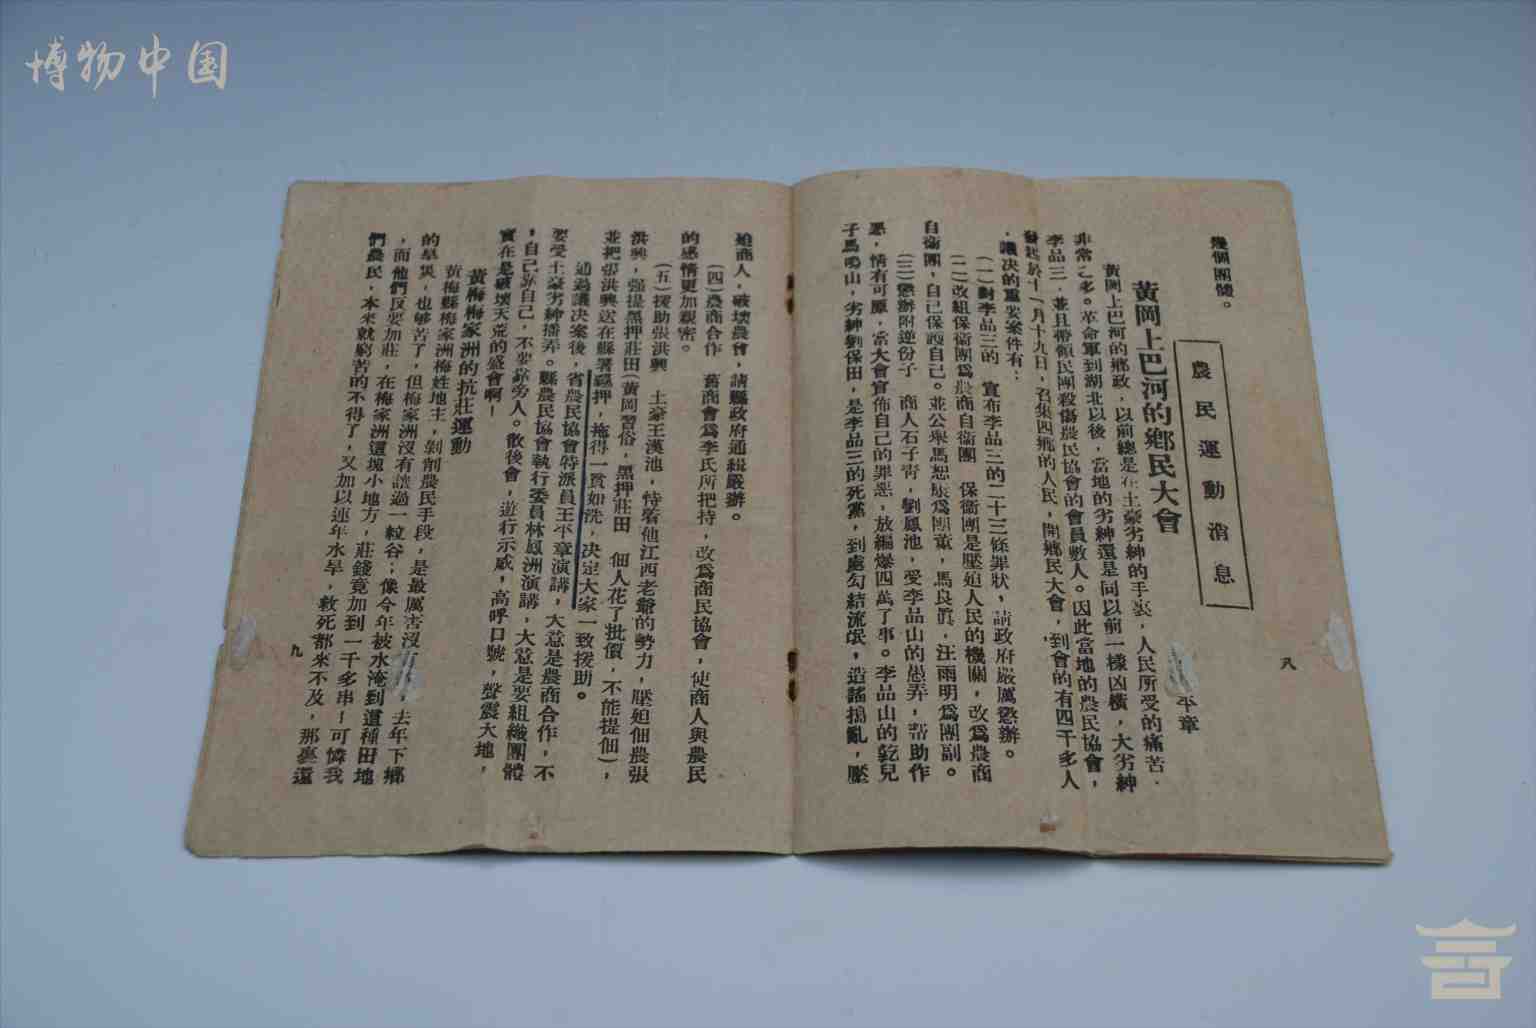 博物中国
幾個團體。
農民運動消息
黃岡上巴河的鄉民大會
平章
黃岡上巴河的鄉政，以前總是在土豪劣紳的手裏，人民所受的痛苦，
非常之多。革命軍到湖北以後，當地的劣紳還是同以前一樣凶橫，大劣紳
李品三，並且帶領民團殺傷農民協會的會員數人。因此當地的農民協會，
發起於十一月十九日，召集四鄉的人民，開鄉民大會，到會的有四千多人
，議决的重要案件有：
（一）對李品三的　宣布李品三的二十三條罪狀，請政府嚴厲懲辦。
（二）改組保衛團爲農商自衛團　保衛團是壓迫人民的機關，改爲農商
自衛團，自己保護自己。並公舉馬恕旅爲團董，馬良眞，汪雨明爲團副。
（三）懲辦附逆份子　商人石子靑，劉鳳池，受李品山的愚弄，帮助作
惡，情有可原，當大會宣佈自己的罪惡，放編爆四萬了事。李品山的乾兒
子馬鳴山，劣紳劉保田，是李品三的死黨，到處勾結流氓，造謠搗亂，壓
八
迫商人，破壞農會，請縣政府通緝嚴辦。
（四）農商合作　舊商會爲李氏所把持，改爲商民協會，使商人與農民
的感情更加親密。
（五）援助張洪興　土豪王漢池，恃着他江西老爺的勢力，壓迫佃農張
洪興，强提黑押莊田（黃岡習俗，黑押莊田　佃人花了批價，不能提佃），
並把張洪興送在縣署羈押，拖得一貧如洗，决定大家一致援助。
通過議决案後，省農民協會特派員王平章演講，大意是農商合作，不
要受土豪劣紳播弄。縣農民協會執行委員林鳳洲演講，大意是要組織團體
，自己靠自己，不要靠旁人。散後會，遊行示威，高呼口號，聲震大地，
實在是破壞天荒的盛會啊！
黃梅梅家洲的抗莊運動
黃梅縣梅家洲梅姓地主，剝削農民手段，是最厲害沒有，去年下鄉
的旱災，也够苦了，但梅家洲沒有讓過一粒谷；像今年被水淹到這種田地
，而他們反要加莊，在梅家洲這塊小地方，莊錢竟加到一千多串！可憐我
們農民，本來就窮苦的不得了，又加以連年水旱，救死都來不及，那裏還
九